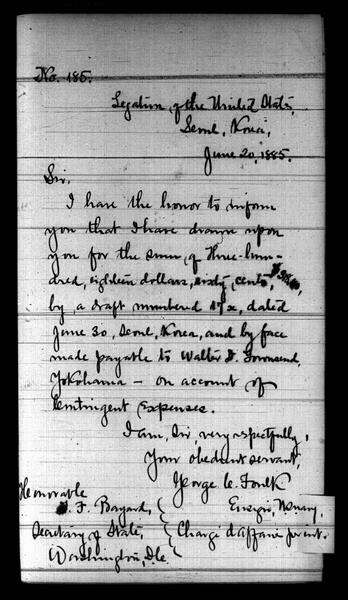 No. 185.
Legation of the United States,
Seoul, Korea,
June 20, 1885.
Sir,
I have the honor to inform
you that I have drawn upon
you for the sum of Three-hun-
dred, eighteen dollars, sixty, cents,
by a draft numbered dated
June 30, Seoul, Korea, and by face
made payable to Walter D. Townsend,
Yokohama — on account of
Contingent Expenses.
I am, Sir very respectfully,
Your obedient servant,
George C. Foulk
Ensign, U.S. Navy,
Chargé d'affaires
Honorable
T. F. Bayard,
Secretary of State,
Washington, D.C.